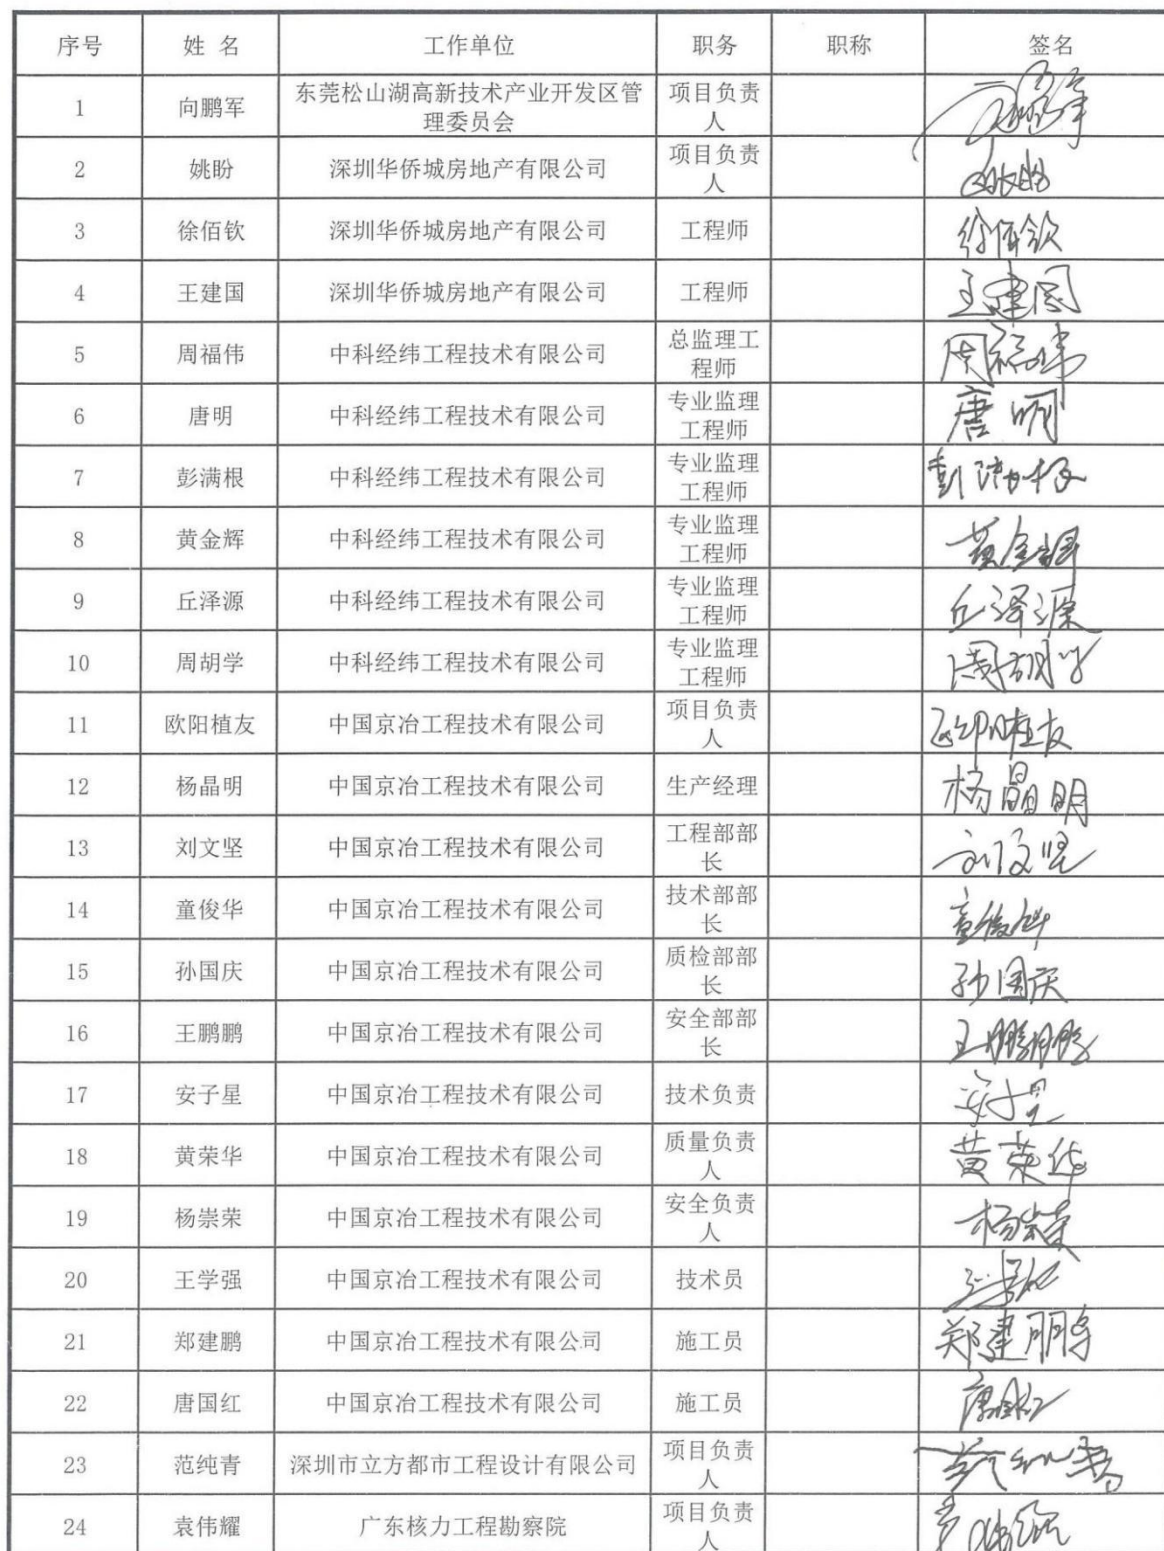 序号 姓 名 工作单位 职务 职称 签名
1 向鹏军 东莞松山湖高新技术产业开发区管理委员会 项目负责人
2 姚盼 深圳华侨城房地产有限公司 项目负责人 姚盼
3 徐佰钦 深圳华侨城房地产有限公司 工程师 徐佰钦
4 王建国 深圳华侨城房地产有限公司 工程师 王建国
5 周福伟 中科经纬工程技术有限公司 总监理工程师 周福伟
6 唐明 中科经纬工程技术有限公司 专业监理工程师 唐明
7 彭满根 中科经纬工程技术有限公司 专业监理工程师 彭满根
8 黄金辉 中科经纬工程技术有限公司 专业监理工程师 黄金辉
9 丘泽源 中科经纬工程技术有限公司 专业监理工程师 丘泽源
10 周胡学 中科经纬工程技术有限公司 专业监理工程师 周胡学
11 欧阳植友 中国京冶工程技术有限公司 项目负责人 欧阳植友
12 杨晶明 中国京冶工程技术有限公司 生产经理 杨晶明
13 刘文坚 中国京冶工程技术有限公司 工程部部长 刘文坚
14 童俊华 中国京冶工程技术有限公司 技术部部长 童俊华
15 孙国庆 中国京冶工程技术有限公司 质检部部长 孙国庆
16 王鹏鹏 中国京冶工程技术有限公司 安全部部长 王鹏鹏
17 安子星 中国京冶工程技术有限公司 技术负责 安子星
18 黄荣华 中国京冶工程技术有限公司 质量负责人 黄荣华
19 杨崇荣 中国京冶工程技术有限公司 安全负责人 杨崇荣
20 王学强 中国京冶工程技术有限公司 技术员
21 郑建鹏 中国京冶工程技术有限公司 施工员 郑建鹏
22 唐国红 中国京冶工程技术有限公司 施工员 唐国红
23 范纯青 深圳市立方都市工程设计有限公司 项目负责人 范纯青
24 袁伟耀 广东核力工程勘察院 项目负责人